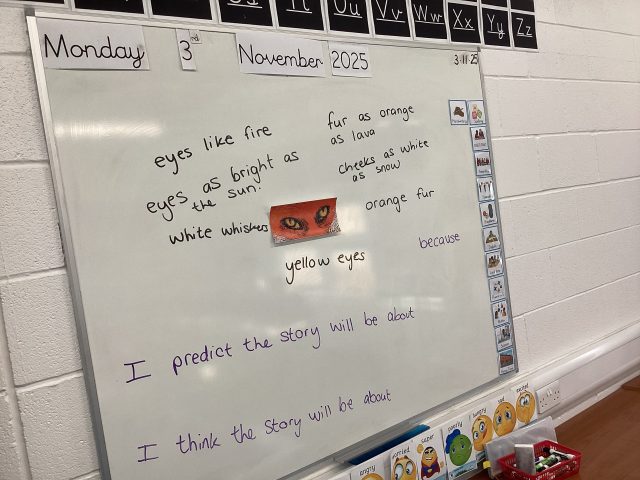 Uu Vv Ww Xx Yy Zz
Monday 3rd November 2025
3.11.25
eyes like fire
fur as orange
as lava
eyes as bright as
the sun.
cheeks as white
as snow
white whiskers
orange fur
yellow eyes
because
I predict the story will be about
I think the story will be about
angry
worried
super
hungry
sad
excited